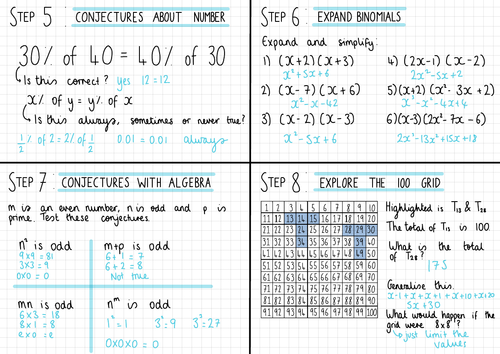 STEP 5 CONJECTURES ABOUT NUMBER
30% of 40 = 40% of 30
Is this correct? yes 12=12
x% of y = y% of x
Is this always, sometimes or never true?
1/2 % of 2 = 2% of 1/2 0.01 = 0.01 always
STEP 6 EXPAND BINOMIALS
Expand and simplify:
1) (x+2)(x+3)
x²+5x+6
2) (x-7)(x+6)
x²-x-42
3) (x-2)(x-3)
x²-5x+6
4) (2x-1)(x-2)
2x²-5x+2
5) (x+2)(x²-3x+2)
x³-x²-4x+4
6) (x-3)(2x²-7x-6)
2x³-13x²+15x+18
STEP 7 CONJECTURES WITH ALGEBRA
m is an even number, n is odd and p is
prime. Test these conjectures.
n² is odd
9×9=81
3×3=9
O×O=O
m+p is odd
6+1=7
6+2=8
Not true
mn is odd
6×3=18
8×1=8
e×o=e
nᵐ is odd
1²=1 3²=9 3³=27
O×O×O=O
STEP 8 EXPLORE THE 100 GRID
1 2 3 4 5 6 7 8 9 10
11 12 13 14 15 16 17 18 19 20
21 22 23 24 25 26 27 28 29 30
31 32 33 34 35 36 37 38 39 40
41 42 43 44 45 46 47 48 49 50
51 52 53 54 55 56 57 58 59 60
61 62 63 64 65 66 67 68 69 70
71 72 73 74 75 76 77 78 79 80
81 82 83 84 85 86 87 88 89 90
91 92 93 94 95 96 97 98 99 100
Highlighted is T13 & T28
The total of T13 is 100
What is the total
of T28?
175
Generalise this.
x-1+x+x+1+x+10+x+20
5x+30
What would happen if the
grid were 8x8?
just limit the
values